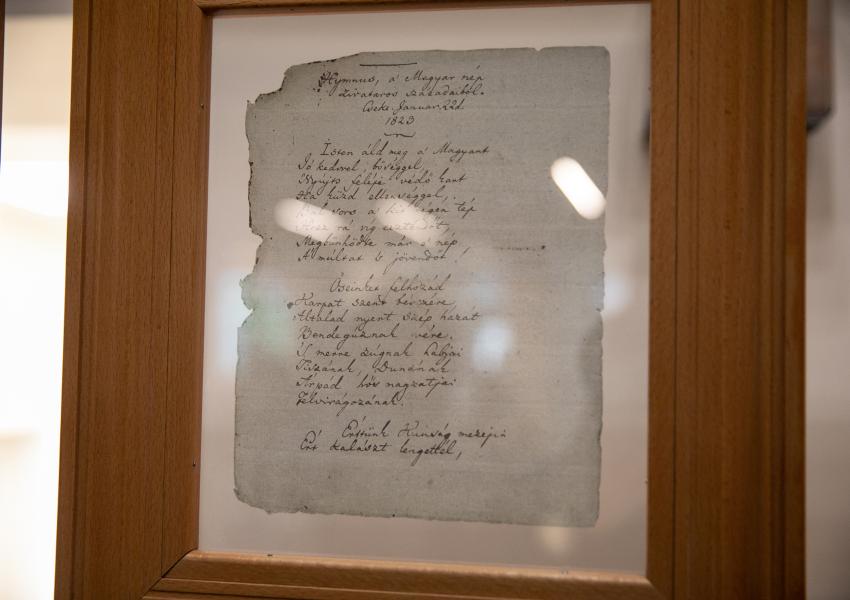 Hymnus, a' Magyar nép
zivataros századaiból.
Cseke. Januar. 22d.
1823
Isten áld meg a' Magyart
Jó kedvvel, bőséggel,
Nyújts feléje védő kart
Ha küzd ellenséggel,
Bal sors a' kit régen tép
Hozz rá víg esztendőt,
Megbűnhődte már e' nép
A' múltat 's jövendőt!
Őseinket felhozád
Kárpát szent bérczére,
Általad nyert szép hazát
Bendegúznak vére.
'S merre zúgnak habjai
Tiszának, Dunának
Árpád hős magzatjai
Felvirágozának.
Értünk Kunság mezéjin
Ért kalászt lengettél,